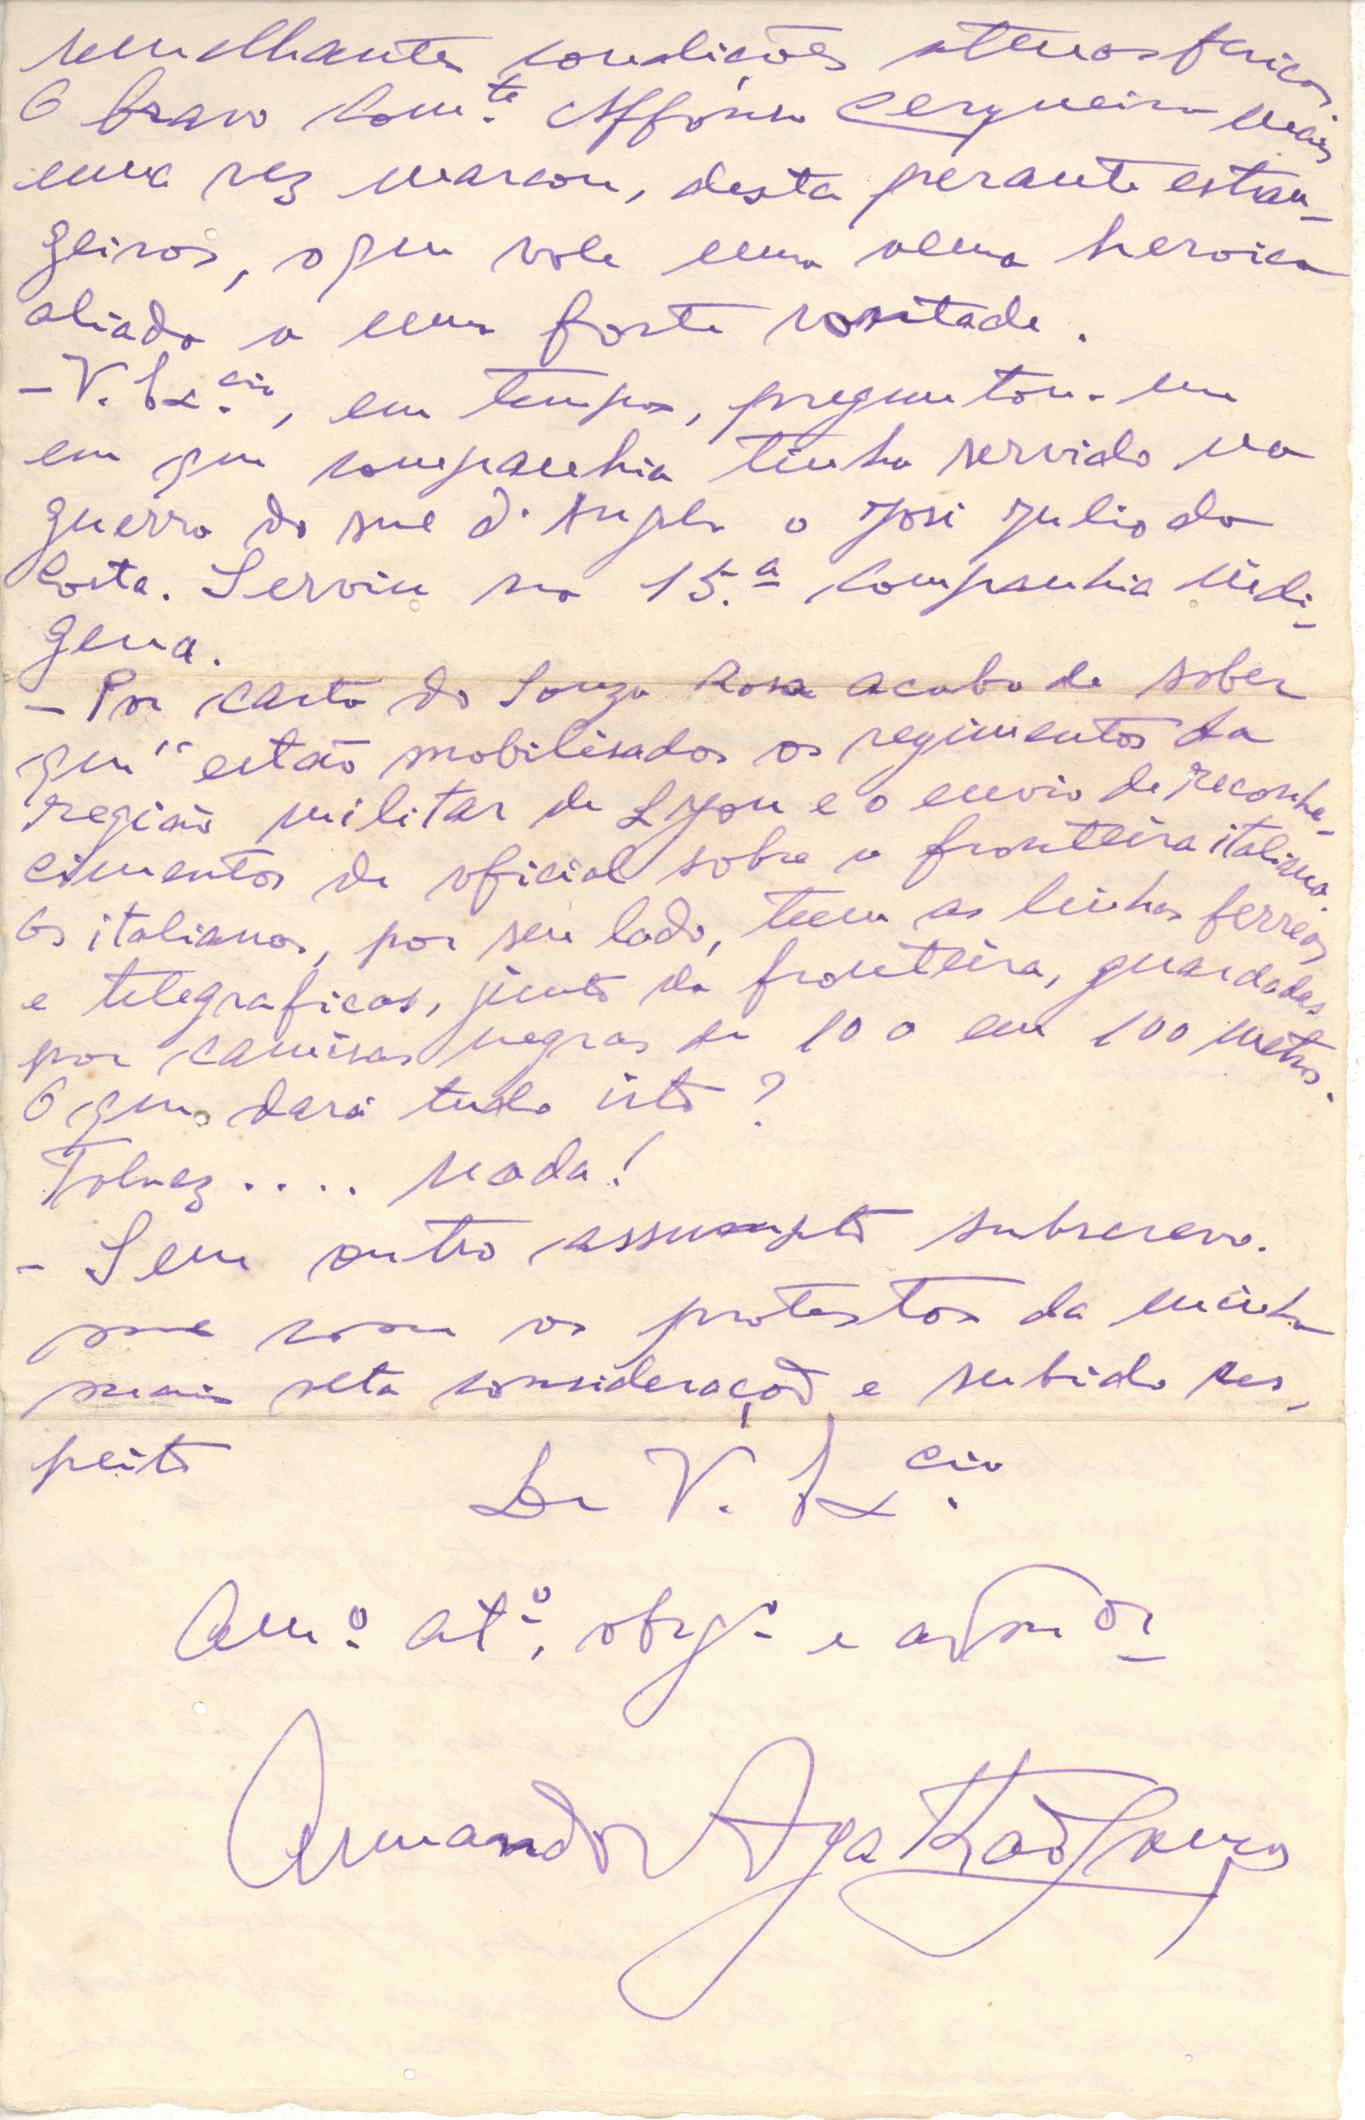 semelhantes condições atmosfericas
O bravo Com.te Affonso Cerqueira mais
uma vez marcou, desta perante estran-
geiros, o que vale uma alma heroica
aliada a uma forte vontade.
- V. Ex.cia, em tempos, preguntou-me
em que companhia tinha servido na
guerra do sul d'Angola o José Julio da
Costa. Serviu na 15.ª companhia indi-
gena.
- Por carta do Souza Rosa acabo de saber
que "estão mobilisados os regimentos da
região militar de Lyon e o envio de reconhe-
cimentos de oficial sobre a fronteira italiana.
Os italianos, por seu lado, teem as linhas ferreas
e telegraficas, junto da fronteira, guardadas
por camisas negras de 100 em 100 metros.
O que dará tudo isto?
Talvez.... nada!
- Sem outro assumpto subscrevo-
me com os protestos da minha
mais alta consideração e subido res-
peito
De V. Ex.cia
Am.º at.º, obrg.º e admor
Armando Agatão Lança